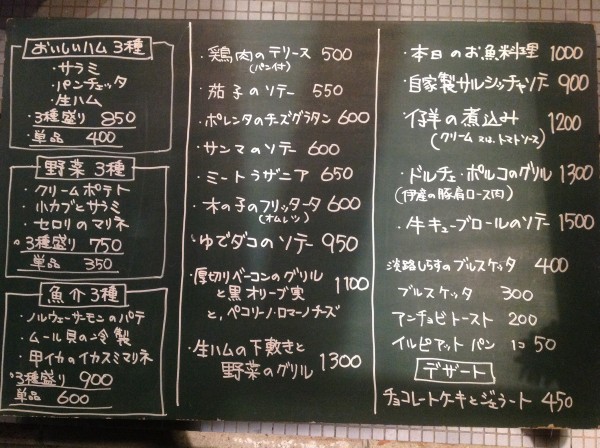 おいしいハム 3種
・サラミ
・パンチェッタ
・生ハム
・3種盛り 850
・単品 400
野菜 3種
・クリームポテト
・小カブとサラミ
・セロリのマリネ
・3種盛り 750
単品 350
魚介 3種
・ノルウェーサーモンのパテ
・ムール貝の冷製
・甲イカのイカスミマリネ
・3種盛り 900
単品 600
・鶏肉のテリーヌ 500
(パン付)
・茄子のソテー 550
・ポレンタのチーズグラタン 600
・サンマのソテー 600
・ミートラザニア 650
・木の子のフリッタータ 600
(オムレツ)
・ゆでダコのソテー 950
・厚切りベーコンのグリル
と黒オリーブ実 1100
と、ペコリーノ・ロマーノチーズ
・生ハムの下敷きと
野菜のグリル 1300
・本日のお魚料理 1000
・自家製サルシッチャソテー 900
・仔羊の煮込み 1200
(クリーム又は、トマトソース)
・ドルチェ・ポルコのグリル 1300
(伊産の豚肩ロース肉)
・牛キューブロールのソテー 1500
淡路しらすのブルスケッタ 400
ブルスケッタ 300
アンチョビトースト 200
イルピアット パン 1コ 50
デザート
チョコレートケーキとジェラート 450